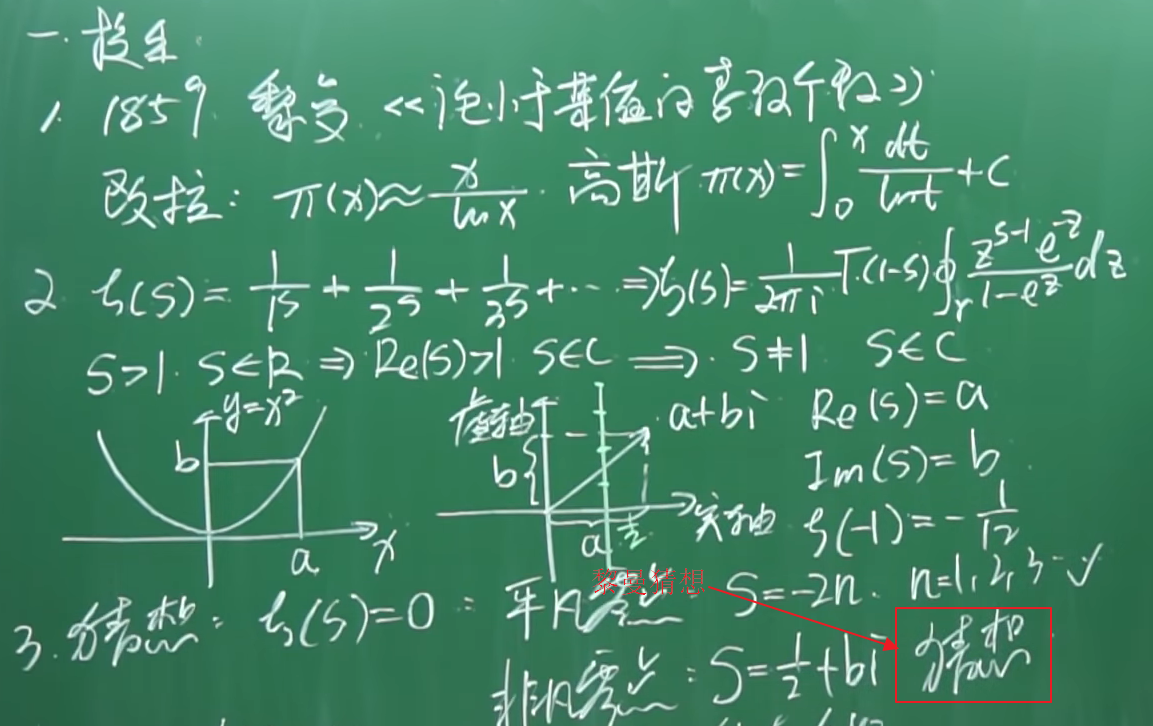 一. 提出
1. 1859 黎曼 《论小于某值的素数个数》
欧拉: π(x)≈x/lnx. 高斯 π(x)=∫₀ˣ dt/lnt +C
2 ζ(S)= 1/1ˢ + 1/2ˢ + 1/3ˢ + ... ⇒ ζ(s)= 1/2πi Γ(1-S)∮ᵧ z^(s-1) e^(-z)/(1-e^z) dz
S>1. S∈R ⇒ Re(S)>1 S∈C ⟹ S≠1 S∈C
y=x²
b
a
x
虚轴
b
a
1/2
实轴
a+bi
Re(S)=a
Im(S)=b
ζ(-1)=-1/12
黎曼猜想
3. 猜想: ζ(S)=0: 平凡零点: S=-2n. n=1,2,3…✓
非凡零点: S=1/2+bi 猜想